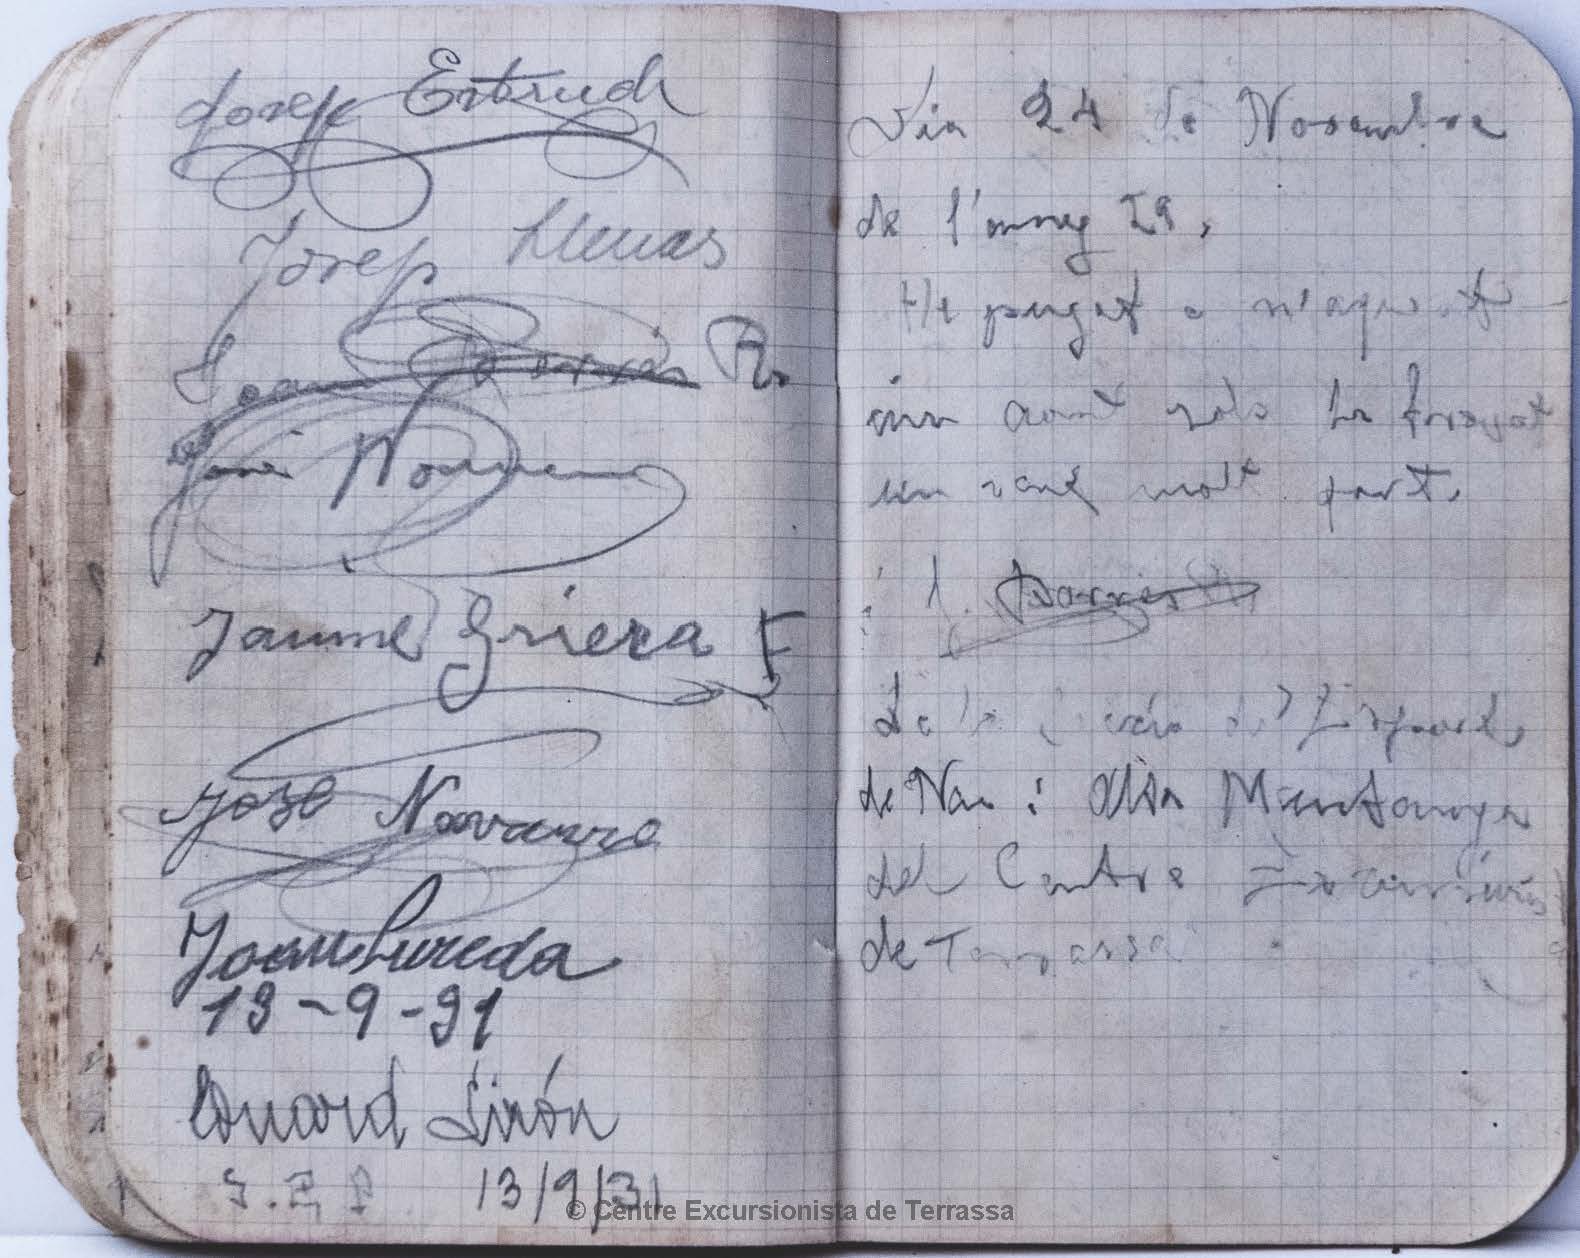 Josep
Josep Llenas
Joan R.
José
Jaume Griera F
José Navarro
Joan Lureda
13-9-31
Eduard Simón
13/9/31
Dia 24 de Novembre
de l'any 29,
He pugat a n'aquest
cim aont sols he trovat
un vent molt fort.
J. Barrés
de Neu i Alta Muntanya
del Centre Excursionis
de Tarrassa
© Centre Excursionista de Terrassa